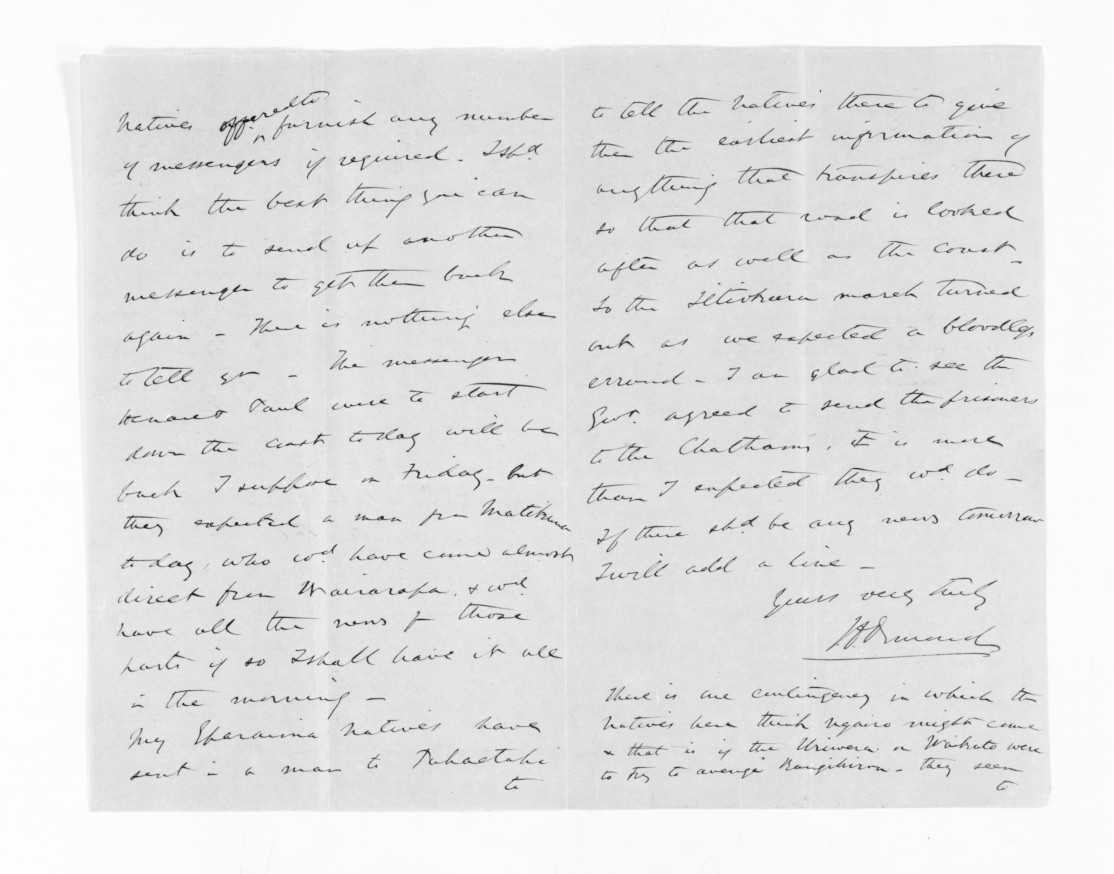 offered to
Natives ^ furnish any number
of messengers if required. I shd
think the best thing you can
do is to send up another
messenger to get them back
again – There is nothing else
to tell yr – The messengers
Henare & Paul were to start
down the coast today will be
back I suppose on Friday – but
they expected a man from
today, who wod have come almost
direct from Wairarapa, & wd
have all the news of those
parts if so I shall have it all
in the morning –
My Eparaima natives have
sent in a man to
to
to tell the Natives there to give
them the earliest information of
anything that transpires there
so that that road is looked
after as well as the coast –
So the march turned
out as we expected a bloodless
errand – I am glad to see the
Govt. agreed to send the prisoners
to the Chathams. It is more
than I expected they wd do –
If there shd be any news tomorrow
I will add a line –
Yours very truly
J D Ormond
There is one contingency in which the
natives here think Ngairo might come
& that is if the Uriwera or Waikato were
to try to avenge Rangihiroa – they seem
to